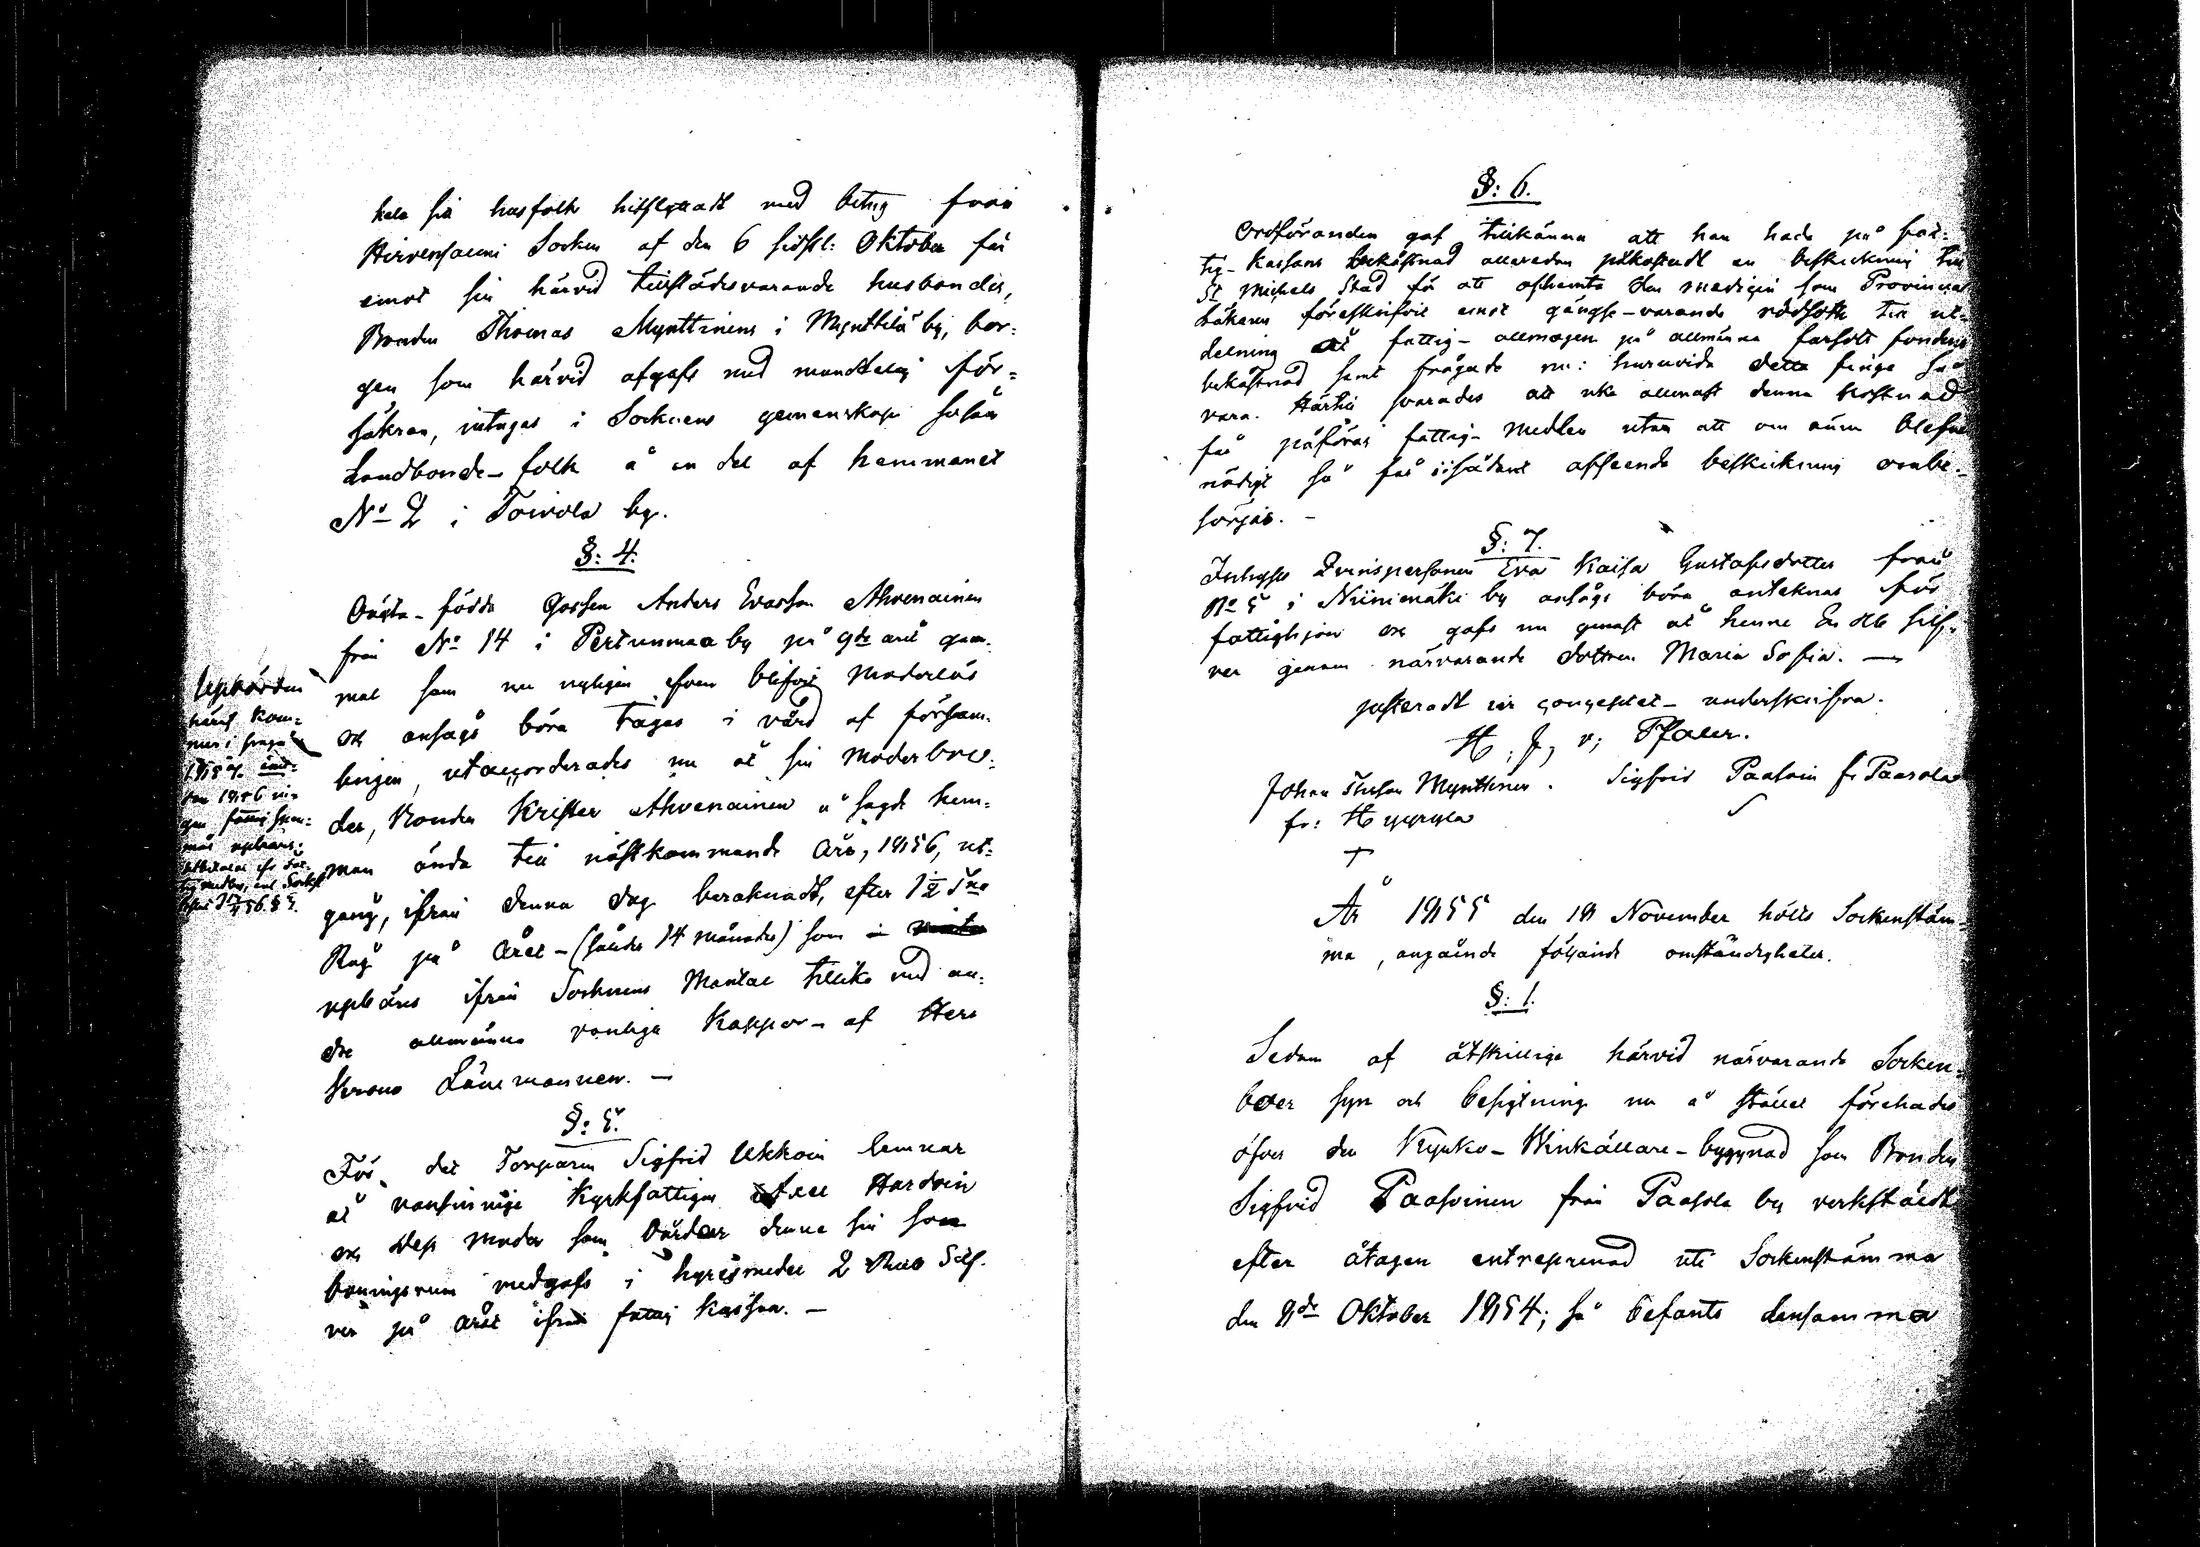 kala sin husfolk hitflyttadt med betyg från
Hirvensalmi Socken af den 6 sidstl: Oktober får
emot sin härvid tillstädesvarande husbondes,
Bonden Thomas Mynttinens i Mynttilä by, bor=
gen som härvid afgafs med muntelig för=
säkran, intagas i Socknens gemenskap såsom
Landbonde-folk å en del af hemmanet
No 2 i Toivola by.
§: 4.
Oäkta-födda Gossen Anders Evasson Ahvenainen
från No 14 i Pertunmaa by på 9de året gam=
mal som nu nyligen äfven blifvit Moderlös
och ansågs böra tagas i vård af försam=
lingen, utaccorderades nu åt sin Moderbro=
der, Bonden Krister Ahvenainen å sagde hem=
man ända till nästkommande års, 1856, ut=
gång, ifrån denna dag beräknadt, efter 1 1/2 Tnr
Råg på året - (således 14 månader) som
upbäres ifrån Socknens Mantal tillika med an=
dre allmänna vanliga Kappor af Herr
Krono Länsmannen. —
Upbörden
häraf kom=
mer i fråga
1857.
§: 5.
För det Torparen Sigfrid Ukkoin lemnar
åt vansinnige Kyrkfattigen Hardoin
och dess moder som vårdar denne sin son
boningsrum medgafs i hyresmedel 2 Rub Silf=
ver på året ifrån fattig Kassan. —
§: 6.
Ordföranden gaf tillkänna att han hade på fat=
tig-Kassans bekostnad allaredan påkostadt en beskickning till
St Michels Stad för att afhemta den medicin som Provincial
läkaren föreskrifvit emot gängse-varande rödsoth till ut=
delning åt fattig-allmogen på allmänna farsots fondens
bekostnad samt frågade nu: huruvida detta finge så
vara. Härtill svarades att icke allenast denna kostnad
få påföras fattig-Medlen utan att om ännu blefve
nödigt så får i sådant afseende beskickning ombe=
sörjas. —
§: 7.
Inhyses Qvinspersonen Eva Kaisa Gustafsdotter från
No 5 i Niinimäki by ansågs böra anteknas för
fattighjon och gafs nu genast åt henne En Rub silf=
ver genom närvarande dottren Maria Sofia. —
justeradt in continenti - underskrifva.
H. J. v; Pfaler.
Johan Thssson Mynttinen. Sigfrid Paasoin fr Paasola
fr: Hyyryla
+
År 1855 den 18 November hölls Sockenstäm=
ma, angående följande omständigheter.
§: 1.
Sedan af åtskillige härvid närvarande Socken=
boer syn och besigtning nu å stället förehades
öfver den Kyrko-Winkällare-byggnad som Bonden
Sigfrid Paasoinen från Paasola by verkstäldt
efter åtagen entreprenad uti Sockenstämma
den 8de Oktober 1854; så befants densamma